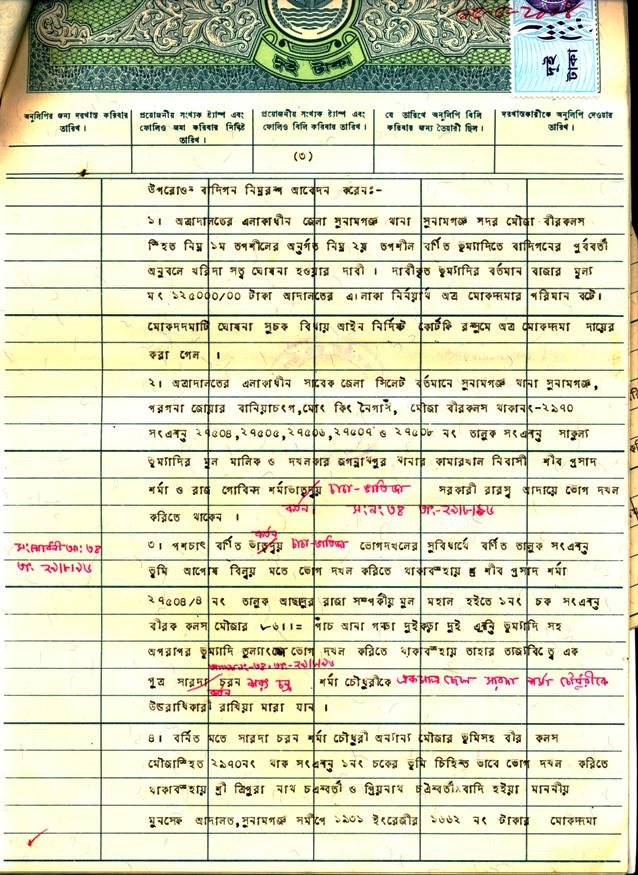 দুই টাকা
দুই
টাকা
অনুলিপির জন্য দরখাস্ত করিবার তারিখ।
প্রয়োজনীয় সংখ্যক ষ্ট্যাম্প এবং ফোলিও জমা করিবার নির্দিষ্ট তারিখ।
প্রয়োজনীয় সংখ্যক ষ্ট্যাম্প এবং ফোলিও বিলি করিবার তারিখ।
যে তারিখে অনুলিপি বিলি করিবার জন্য তৈয়ারী ছিল।
দরখাস্তকারীকে অনুলিপি দেওয়ার তারিখ।
(৩)
উপরোক্ত বাদিগন নিম্নরূপ আবেদন করেনঃ-
১। অত্রাদালতের এলাকাধীন জেলা সুনামগঞ্জ থানা সুনামগঞ্জ সদর মৌজা বীরকলস
স্হিত নিম্ন ১ম তপশীলের অন্তর্গত নিম্ন ২য় তপশীল বর্ণিত ভূম্যাদিতে বাদিগনের পূর্ববর্তী
অনুবলে খরিদা সত্ব ঘোষনা হওয়ার দাবী। দাবীকৃত ভূম্যাদির বর্তমান বাজার মূল্য
মং ১২৫০০০/০০ টাকা আদালতের এলাকা নির্নয়ার্থ অত্র মোকদ্দমার পরিমান বটে।
মোকদদমাটি ঘোষনা সূচক বিধায় আইন নির্দিষ্ট কোর্টফি রসুমে অত্র মোকদ্দমা দায়ের
করা গেল ।
২। অত্রাদালতের এলাকাধীন সাবেক জেলা সিলেট বর্তমানে সুনামগঞ্জ থানা সুনামগঞ্জ,
পরগনা জোয়ার বানিয়াচংগ,মোং কিং নৈগাঁস, মৌজা বীরকলস থাকানং-২৯৭০
সংক্রান্ত ২৭৫০৪,২৭৫০৫,২৭৫০৬,২৭৫০৭ ও ২৭৫০৮ নং তালুক সংক্রান্ত সাকুল্য
ভূম্যাদির মূল মালিক ও দখলকার জগন্নাথপুর থানার কামারখাল নিবাসী শীব প্রসাদ
শর্মা ও রাজ গোবিন্দ শর্মা ভ্রাতৃদ্বয় চাচা-ভাতিজা সরকারী রাজস্ব আদায়ে ভোগ দখল
করিতে থাকেন । কর্তন। সং:নং:৩৪
কর্তন
৩। পশচাৎ বর্ণিত ভ্রাতৃদ্বয় চাচা-ভাতিজা ভোগদখলের সুবিধার্থে বর্ণিত তালুক সংক্রান্ত
ভূমি আপোষ বিলয় মতে ভোগ দখল করিতে থাকাবস্হায় শ্রী শীব প্রসাদ শর্মা
২৭৫০৪/৪ নং তালুক আছলুর রাজা সম্পর্কীয় মূল মহাল হইতে ১নং চক সংক্রান্ত
বীরক কলস মৌজার পাঁচ আনা গন্ডা দুইকড়া দুই ক্রান্ত ভূম্যাদি সহ
অপরাপর ভূম্যাদি তুল্যাংশে ভোগ দখল করিতে থাকাবস্হায় তাহার ত্যাজ্যবিত্তে এক
পুত্র সারদা চরন শর্মা চৌধুরীকে একমাত্র ছেলে সারদা শর্মা চৌধুরীকে
কর্তন
উত্তরাধিকারী রাখিয়া মারা যান ।
৪। বর্নিত মতে সারদা চরন শর্মা চৌধুরী অন্যান্য মৌজার ভূমিসহ বীর কলস
মৌজাস্হিত ২৯৭০নং থাক সংক্রান্ত ১নং চকের ভূমি চিহ্নিত ভাবে ভোগ দখল করিতে
থাকাবস্হায় শ্রী ত্রিপুরা নাথ চক্রবর্তী ও প্রিয়নাথ চক্রবর্তী বাদি হইয়া মাননীয়
মুনসেফ আদালত,সুনামগঞ্জ সমীপে ১৯৩১ ইংরেজীর ১৬৬২ নং টাকার মোকদ্দমা